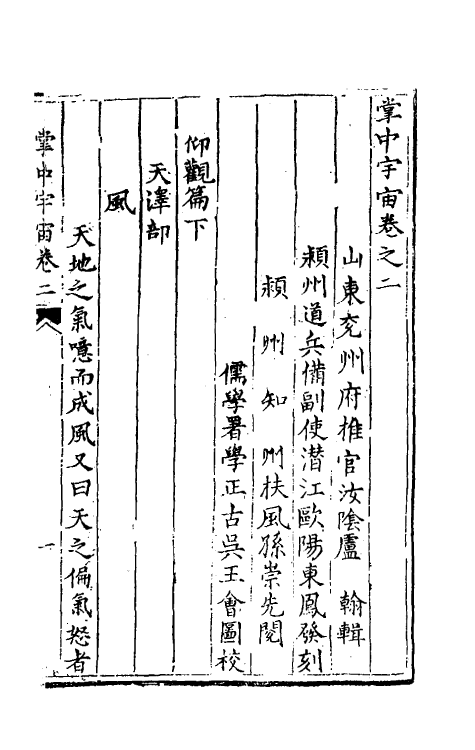 掌中宇宙卷之二
山東兖州府推官汝陰盧　翰輯
潁州道兵備副使潛江歐陽東鳳發刻
潁州知州扶風孫崇先閱
儒學署學正古吳王會圖校
仰觀篇下
天澤部
風
天地之氣噫而成風又曰天之偏氣怒者
掌中宇宙卷二
一